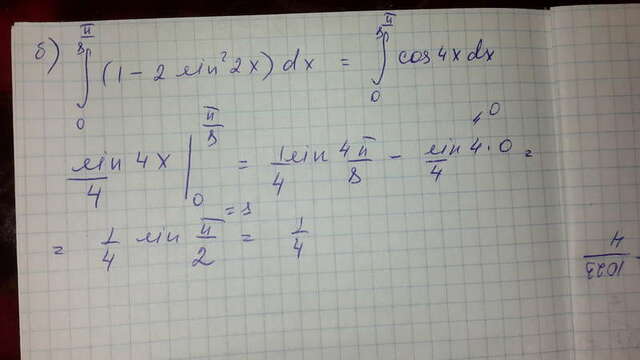 б) ∫₀^(π/8) (1 - 2 sin² 2x) dx = ∫₀^(π/8) cos 4x dx
sin 4x / 4 |₀^(π/8) = 1/4 sin 4π/8 - sin 4·0 / 4 = 0
= 1/4 sin π/2 = 1/4
= 1
1023/4